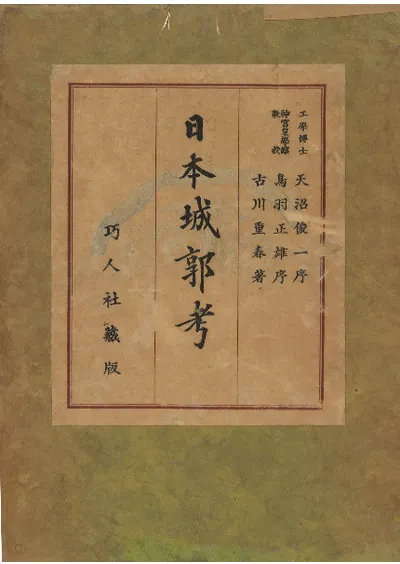 工學博士 天沼俊一序
神宮皇學館教授 鳥羽正雄序
古川重春著
日本城郭考
巧人社藏版